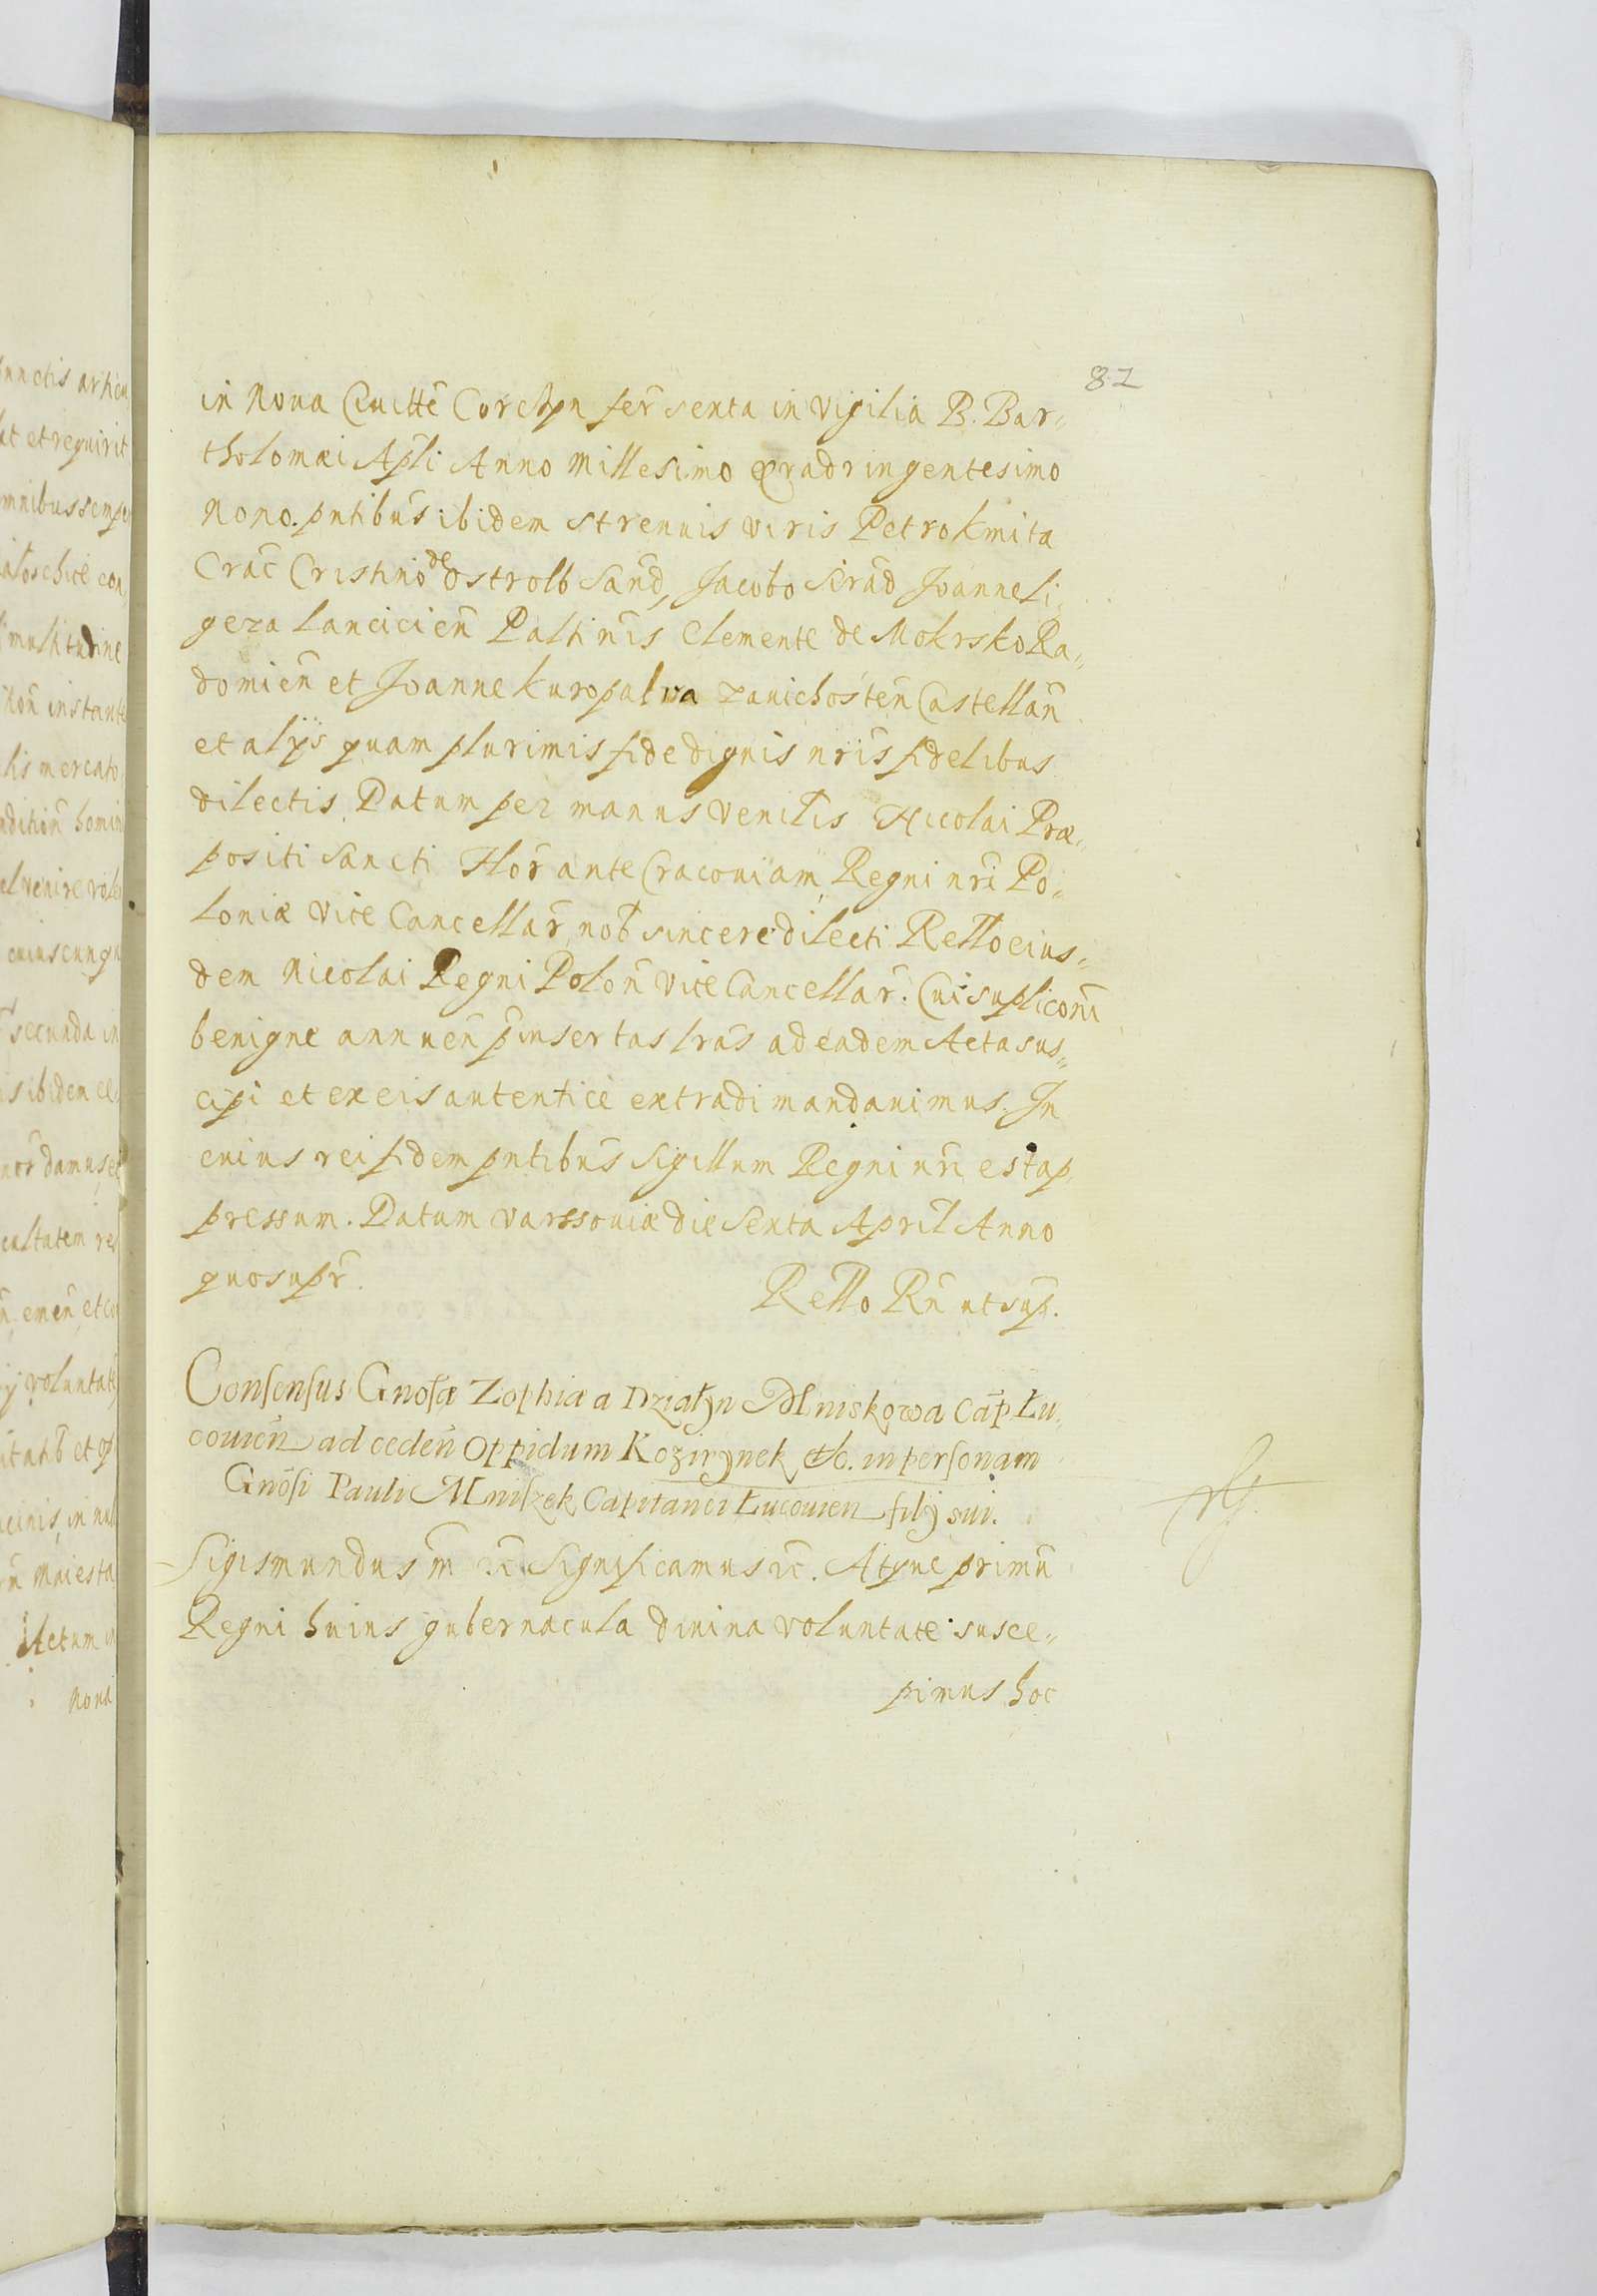 82
in Nova Ciuitte Corchyn fer sexta in vigilia B. Bar„
tholomæi Apli Anno Millesimo Quadringentesimo
Nono. pntibus ibidem strenuis viris Petro Kmita
Crac̄ Cristino de Ostrolb Sand̄, Jacobo Sirad̄ Joanne Li„
geza Lanciciēn Paltinis Clemente de Mokrsko Ra„
domiēn et Joanne Kuropatwa Zauichosteñ Castellañ
et alijs quam plurimis fide dignis nr̄is fidelibus
dilectis. Datum per manus Venilis Nicolai Præ„
positi Sancti Flor̄ ante Cracouiam Regni nr̄i Po„
loniæ Vice Cancellar̄ nob̄ sincere dilecti Rello eius„
dem Nicolai Regni Polon̄ Vice Cancellar̄. Cui suplicōni
benigne annuen̄ p̄insertas lr̄as ad eadem Acta sus„
cipi et ex eis autentice extradi mandauimus. In
cuius rei fidem pntibus Sigillum Regni nr̄i est ap„
pressum. Datum Varssouiæ die Sexta April Anno
quo supr̄.
Rello Rn̄ ut sup̄.
Consensus Gnosæ Zophiæ a Działyn Mniskowa Cap̄ Łu„
couien̄ ad ceden̄ Oppidum Kozirynek etc. in personam
Gnosi Pauli Mniszek Capitanei Łucouien filij sui.
Sigismundus 3m etc Significamus etc. Atque primū
Regni huius gubernacula diuina voluntate susce„
pimus hoc